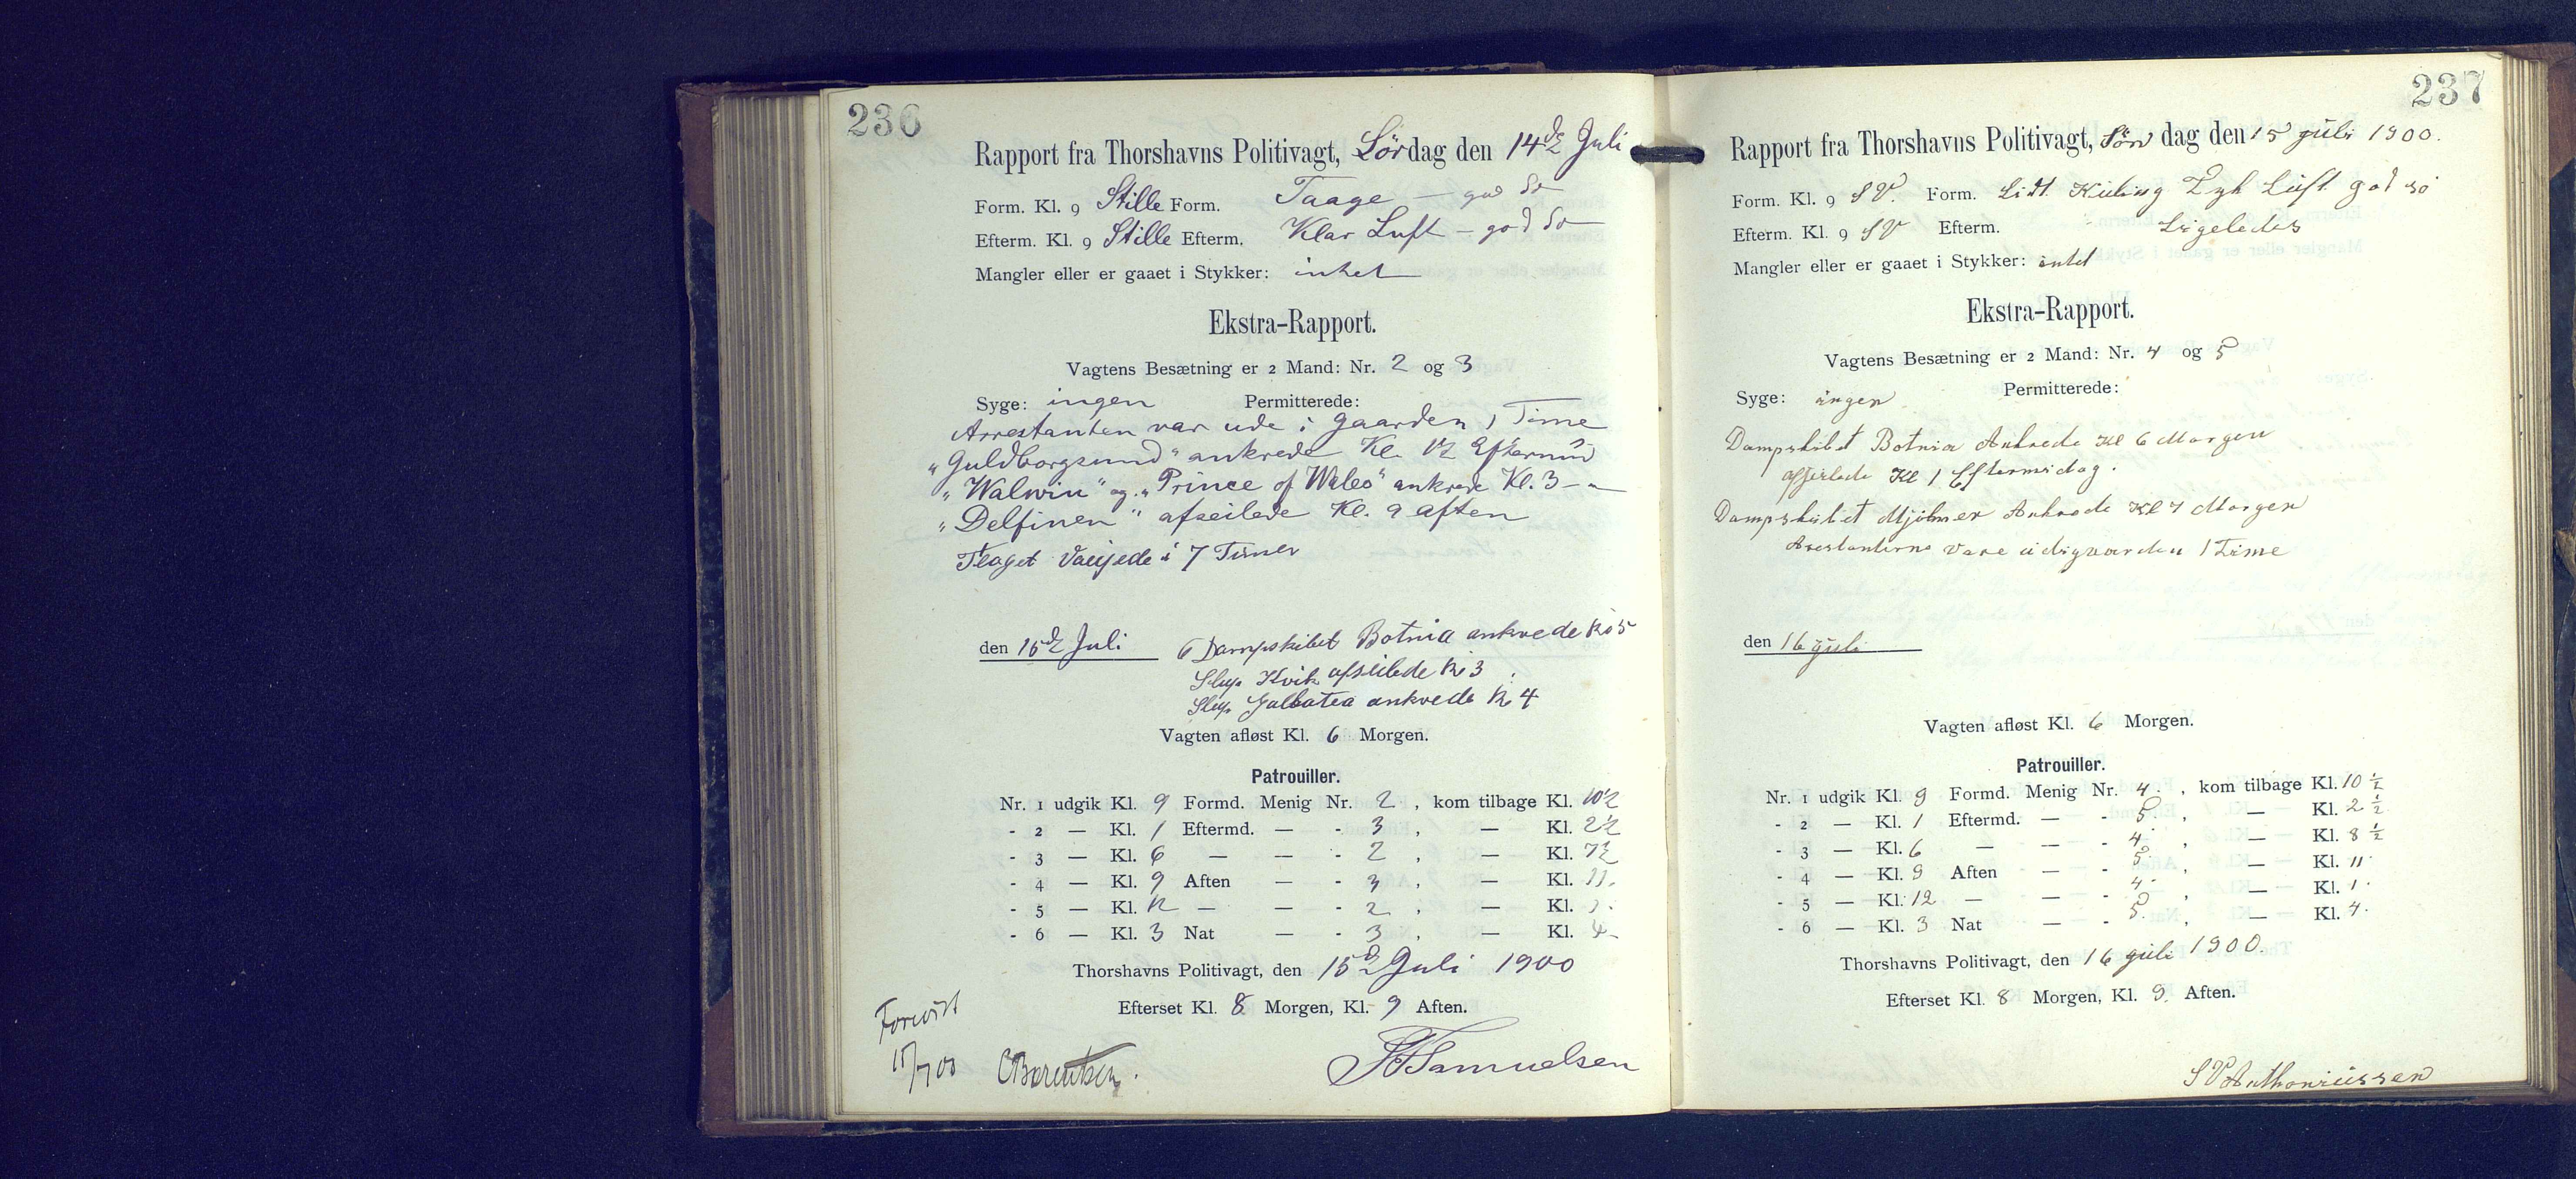 236
Rapport fra Thorshavns Politivagt, Lördag den 14de Juli
Form. Kl. 9 Stille Form. Taage — god Sö
Efterm. Kl. 9 Stille Efterm. Klar Luft — god Sö
Mangler eller er gaaet i Stykker: intet
Ekstra-Rapport.
Vagtens Besætning er 2 Mand: Nr. 2 og 3
Syge: ingen Permitterede:
Arrestanten var ude i Gaarden 1 Time
"Guldborgsund" ankrede Kl. 1½ Eftermid
"Walwin" og "Prince of Wales" ankrede Kl. 3 — "
"Delfinen" afseilede Kl. 9 aften
Flaget Vaijede i 7 Timer
den 15de Juli Dampskibet Botnia ankrede Kl 5
Slup Kvik afseilede Kl 3
Slup Galbatea ankrede Kl 4
Vagten afløst Kl. 6 Morgen.
Patrouiller.
Nr. 1 udgik Kl. 9 Formd. Menig Nr. 2, kom tilbage Kl. 10½
- 2 — Kl. 1 Eftermd. — - 3, — Kl. 2½
- 3 — Kl. 6 — — - 2, — Kl. 7½
- 4 — Kl. 9 Aften — - 3, — Kl. 11.
- 5 — Kl. 12 — — - 2, — Kl. 1.
- 6 — Kl. 3 Nat — - 3, — Kl. 4
Thorshavns Politivagt, den 15de Juli 1900
Efterset Kl. 8 Morgen, Kl. 9 Aften.
Forevist
15/7 00 CBærentsen. Samuelsen
237
Rapport fra Thorshavns Politivagt, Sön dag den 15 juli 1900.
Form. Kl. 9 SV. Form. Lidt Kuling Tyk Luft god sö
Efterm. Kl. 9 SV Efterm. Ligeledes
Mangler eller er gaaet i Stykker: intet
Ekstra-Rapport.
Vagtens Besætning er 2 Mand: Nr. 4 og 5
Syge: ingen Permitterede:
Dampskibet Botnia Ankrede Kl 6 Morgen
afseilede Kl 1 Eftermidag.
Dampskibet Mjölner Ankrede Kl 7 Morgen
Arestanterne vare udigaarden 1 Time
den 16 juli
Vagten afløst Kl. 6 Morgen.
Patrouiller.
Nr. 1 udgik Kl. 9 Formd. Menig Nr. 4., kom tilbage Kl. 10 ½
- 2 — Kl. 1 Eftermd. — - 5, — Kl. 2 ½
- 3 — Kl. 6 — — - 4, — Kl. 8 ½
- 4 — Kl. 9 Aften — - 5, — Kl. 11.
- 5 — Kl. 12 — — - 4, — Kl. 1.
- 6 — Kl. 3 Nat — - 5, — Kl. 4.
Thorshavns Politivagt, den 16 juli 1900.
Efterset Kl. 8 Morgen, Kl. 9. Aften.
SVAnthoniussen